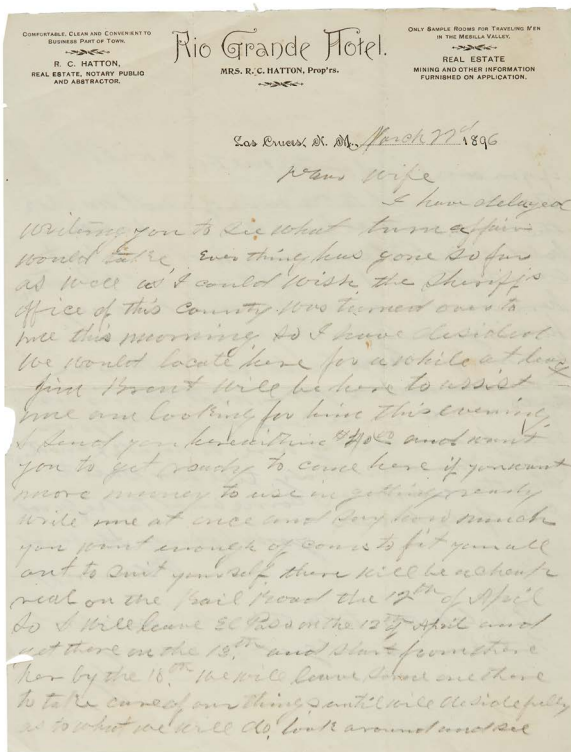 COMFORTABLE, CLEAN AND CONVENIENT TO
BUSINESS PART OF TOWN.
R. C. HATTON,
REAL ESTATE, NOTARY PUBLIC
AND ABSTRACTOR.
Rio Grande Hotel.
MRS. R. C. HATTON, Prop'rs.
ONLY SAMPLE ROOMS FOR TRAVELING MEN
IN THE MESILLA VALLEY.
REAL ESTATE
MINING AND OTHER INFORMATION
FURNISHED ON APPLICATION.
Las Cruces, N. M., March 1896
Dear Wife
I have delayed
writing you to see what turn affairs
would take, Everthing has gone so far
as well as I could wish, the sheriff's
office of this County was turned over to
me this morning so I have desided
we would locate here for a while at least
Jim Brent will be here to assist
me am looking for him this evening
I send you herewith and want
you to get ready to come here if you want
more money to use in getting ready
write me at once and say how much
you want enough of course to fit you all
out to suit yourself, there will be a cheap
on the Rail Road the 12th of April
So I will leave El Paso on the 12th April and
get there on the 13th and start from there
her by the 18th We will leave some one there
to take care of our things until will deside fully
as to what we will do, look around and see